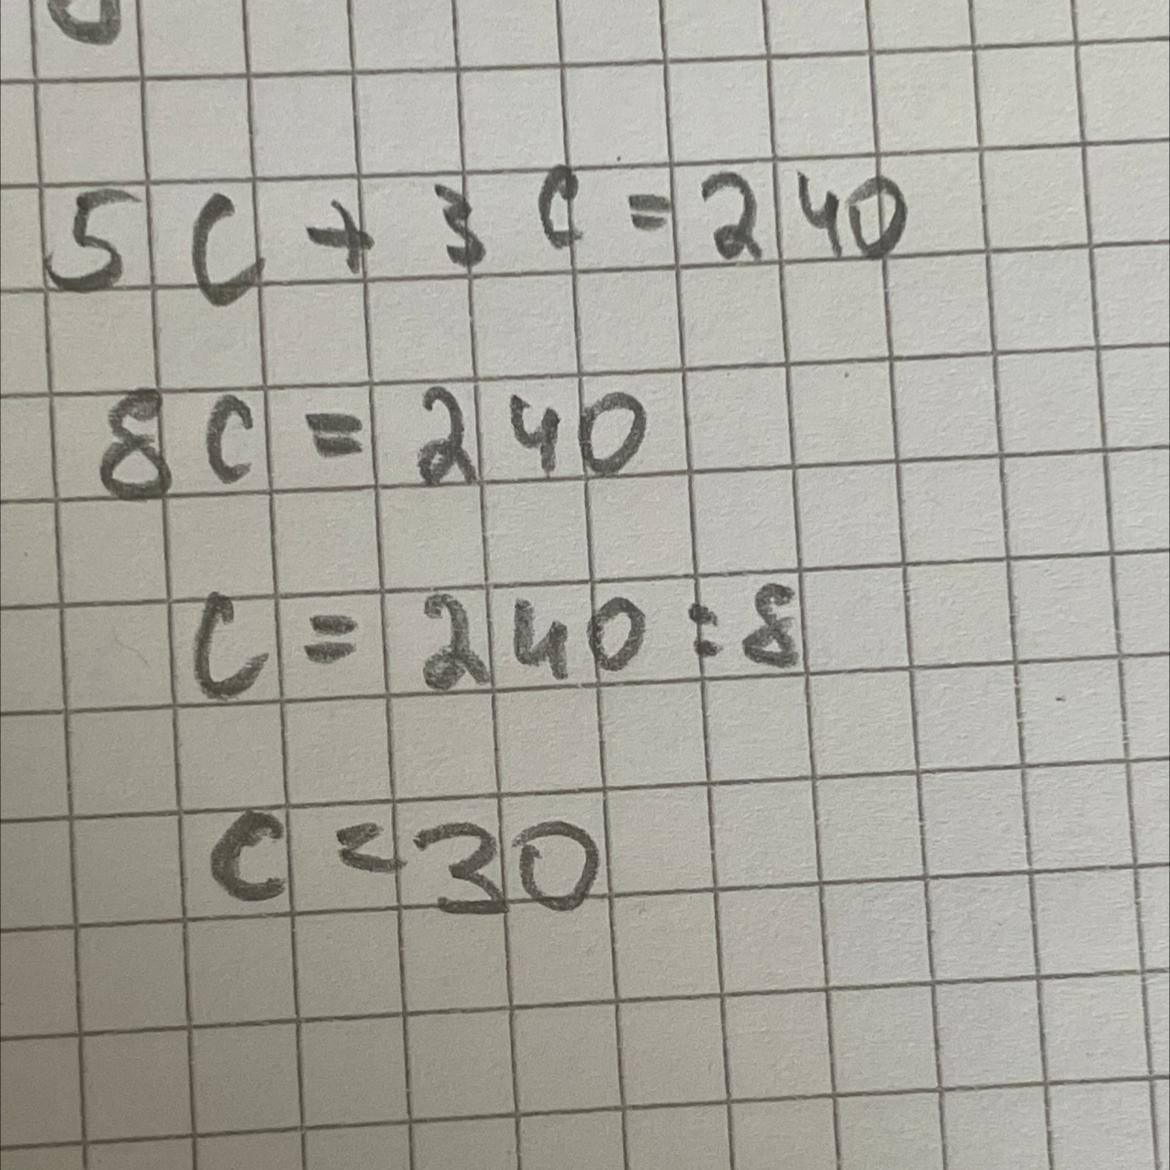 5C + 3C = 240
8C = 240
C = 240 : 8
C = 30